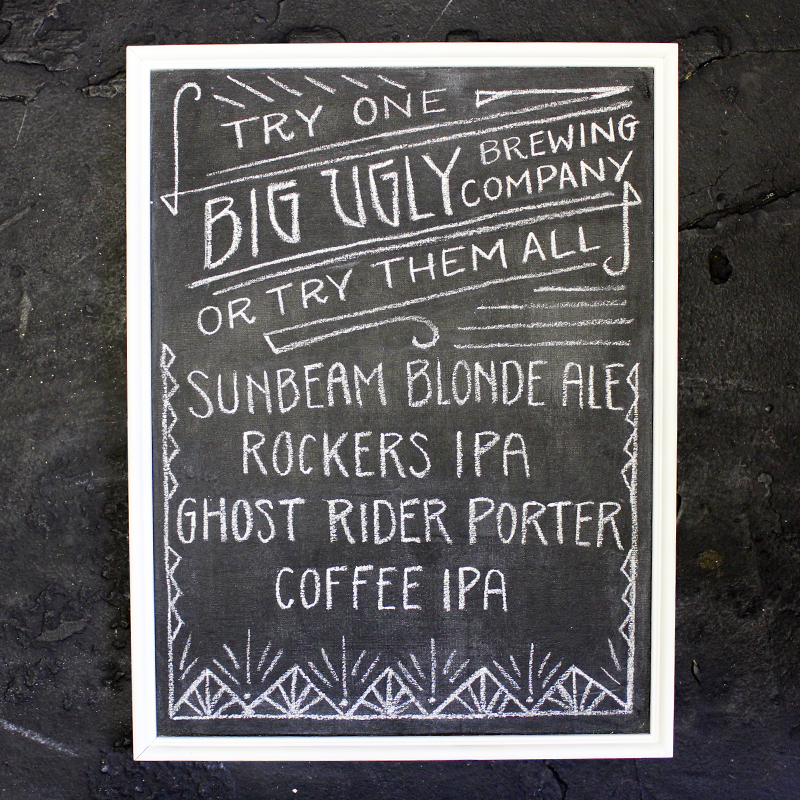 TRY ONE
BIG UGLY BREWING COMPANY
OR TRY THEM ALL
SUNBEAM BLONDE ALE
ROCKERS IPA
GHOST RIDER PORTER
COFFEE IPA